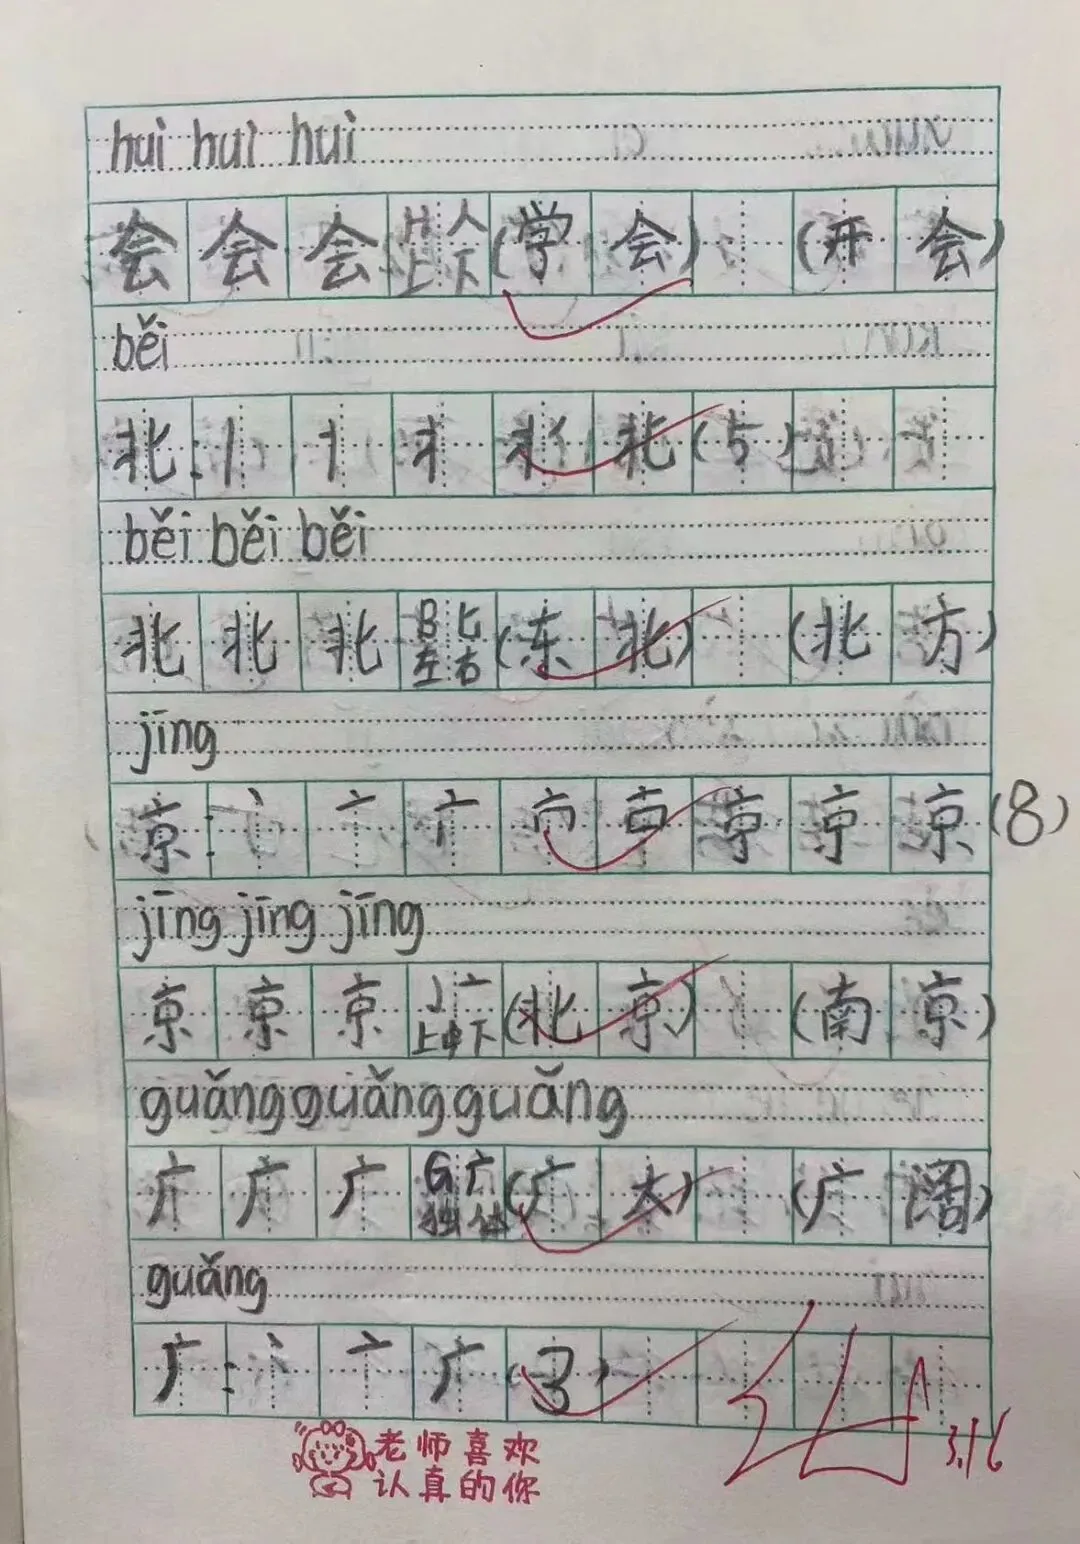 huì huì huì
会 会 会 H 人 上 下 (学 会) (开 会)
běi
北: 丨 北 (5)
běi běi běi
北 北 北 B 匕 左 右 (东 北) (北 方)
jīng
京: 丶 亠 京 (8)
jīng jīng jīng
京 京 京 J 亠 上 中 下 (北 京) (南 京)
guǎng guǎng guǎng
广 广 广 G 广 独 体 (广 大) (广 阔)
guǎng
广: 丶 亠 广 (3)
老师喜欢
认真的你
3.16